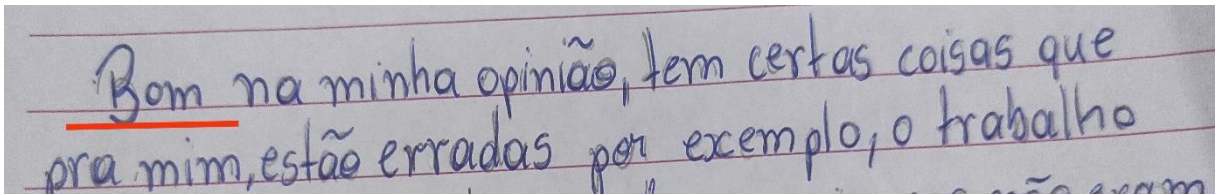 Bom na minha opinião, tem certas coisas que
pra mim, estão erradas por exemplo, o trabalho